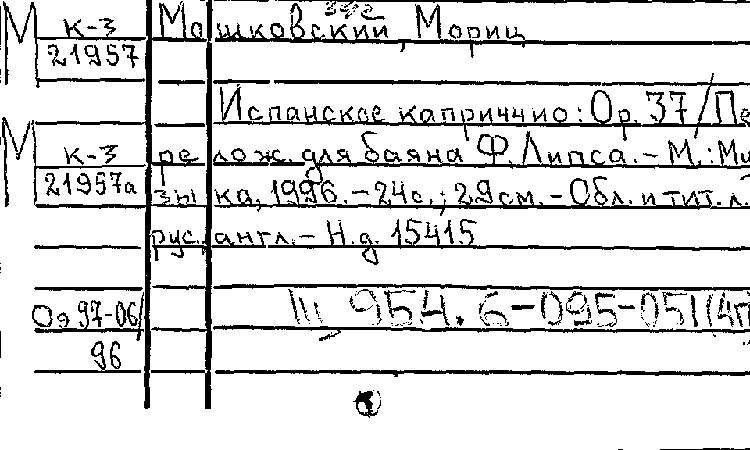 М к-3 Мошковский, Мориц
21957
Испанское каприччио: Op. 37/Пе
М к-3 релож. для баяна Ф. Липса. - М.: Му
21957а зыка, 1996. - 24с.; 29см. - Обл. и тит. л.
рус., англ. - Н.д. 15415
Оэ 97-06/ 954.6-095-051(4П
96